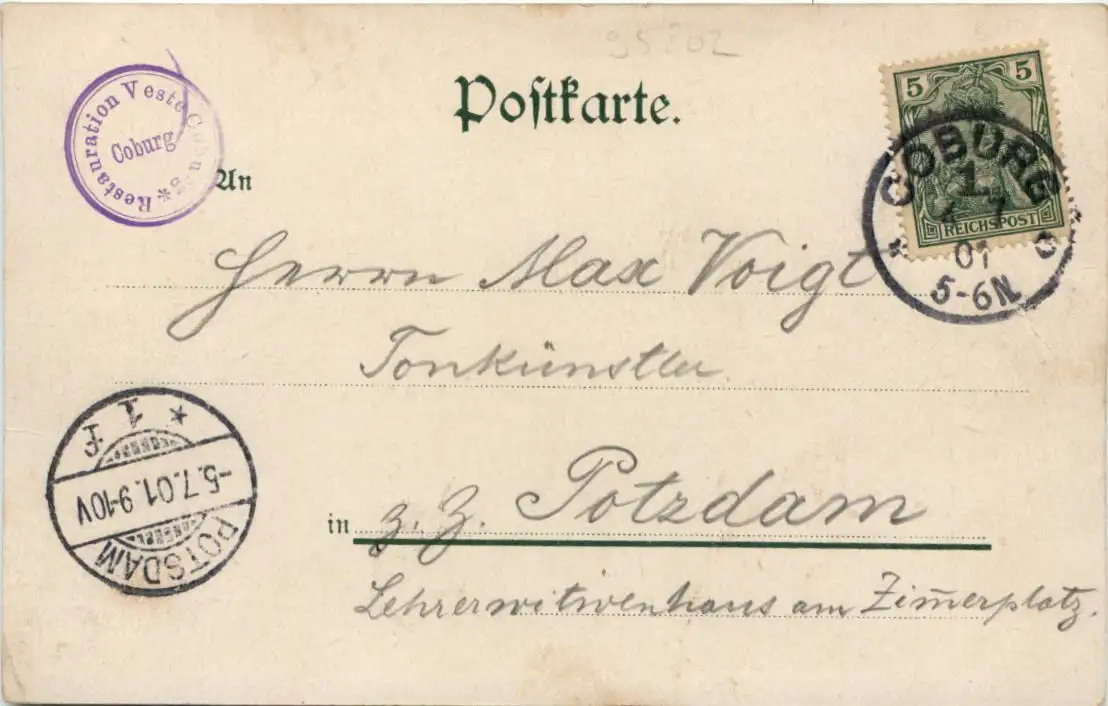 95202
Postkarte.
5 5
REICHSPOST
COBURG
1.
4 7
01
5-6N.
Restauration Veste Coburg *
Coburg
An
Herrn Max Voigt
Tonkünstler.
* 1 f
-5.7.01.9-10V
POTSDAM
in z. Z. Potzdam
Lehrerwitwenhaus am Zim̄erplatz.